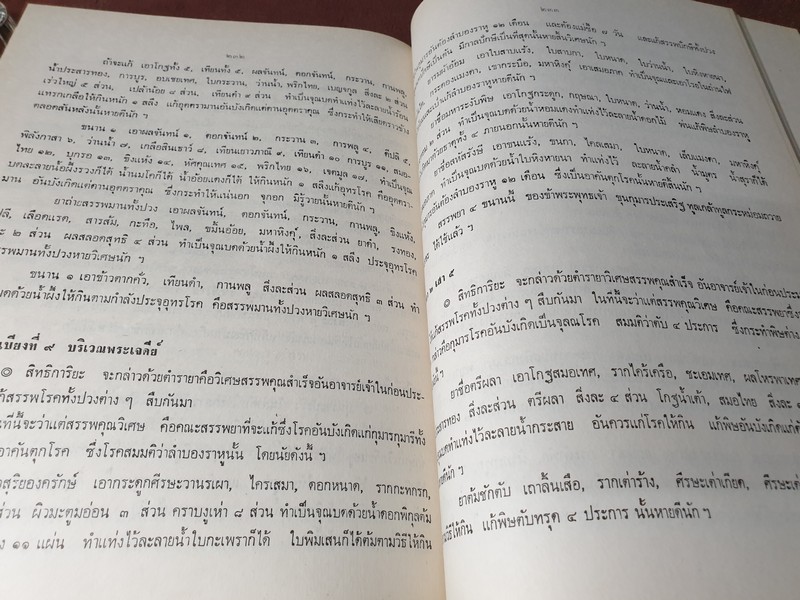 ๒๓๒
ถ้าจะแก้ เอาโกฐทั้ง ๕, เทียนทั้ง ๕, ผลจันทน์, ดอกจันทน์, กระวาน, กานพลู,
น้ำประสารทอง, การบูร, อบเชยเทศ, ใบกระวาน, ว่านน้ำ, พริกไทย, เบญจกูล สิ่งละ ๒ ส่วน
เร่วใหญ่ ๕ ส่วน, เปล้าน้อย ๘ ส่วน, เทียนดำ ๙ ส่วน ทำเป็นจุณบดทำแท่งไว้ละลายน้ำร้อน
แทรกเกลือให้กินหนัก ๑ สลึง แก้อุดรามานอันบังเกิดแต่ดานอุดคราคุณ ซึ่งกระทำให้เสียดราวข้าง
ตลอดสันหลังนั้นหายดีนัก ฯ
ขนาน ๑ เอาผลจันทน์ ๑, ดอกจันทน์ ๒, กระวาน ๓, การพลู ๔, ดีปลี ๕,
พิลังกาสา ๖, ว่านน้ำ ๗, เกลือสินเธาว์ ๘, เทียนเยาวภาณี ๙, เทียนดำ ๑๐ การบูร ๑๑, สมอ-
ไทย ๑๒, บุกรอ ๑๓, ขิงแห้ง ๑๔, หัศคุณเทศ ๑๕, พริกไทย ๑๖, เจตมูล ๑๗, ทำเป็นจุณ
บดละลายน้ำผึ้งรวงก็ได้ น้ำนมโคก็ได้ น้ำอ้อยแดงก็ได้ ให้กินหนัก ๑ สลึงแก้อุทรโรค คืออุดครา-
มาน อันบังเกิดแต่ดานอุดคราคุณ ซึ่งกระทำให้แน่นอก จุกอก มิรู้วายนั้นหายดีนัก ฯ
ยาถ่ายสรรพมานทั้งปวง เอาผลจันทน์, ดอกจันทน์, กระวาน, กานพลู, ขิงแห้ง,
ปลี, เลือดแรด, สารส้ม, กะทือ, ไพล, ขมิ้นอ้อย, มหาหิงคุ์, สิ่งละส่วน ยาดำ, รงทอง,
ะ ๒ ส่วน ผลสลอดสุทธิ ๔ ส่วน ทำเป็นจุณบดด้วยน้ำผึ้งให้กินหนัก ๑ สลึง ประจุอุทรโรค
สรรพมานทั้งปวงหายวิเศษนัก ฯ
ขนาน ๑ เอาข้าวตากคั่ว, เทียนดำ, กานพลู สิ่งละส่วน ผลสลอดสุทธิ ๓ ส่วน ทำ
บดด้วยน้ำผึ้งให้กินตามกำลังประจุอุทรโรค คือสรรพมานทั้งปวงหายวิเศษนัก ฯ
เบียงที่ ๙ บริเวณพระเจดีย์
๏ สิทธิการิยะ จะกล่าวด้วยตำรายาคือวิเศษสรรพคุณสำเร็จอันอาจารย์เจ้าในก่อนประ-
ก้สรรพโรคทั้งปวงต่าง ๆ สืบกันมา
นที่นี้จะว่าแต่สรรพคุณวิเศษ คือคณะสรรพยาที่จะแก้ซึ่งโรคอันบังเกิดแก่กุมารกุมารีทั้ง
อาคันตุกโรค ซึ่งโรคสมมติว่าลำบองราหูนั้น โดยนัยดังนี้ ฯ
สุริยองครักษ์ เอากระดูกศีรษะวานรเผา, ไคร่เสมา, ดอกหนาด, รากกะทกรก,
ส่วน ผิวมะตูมอ่อน ๓ ส่วน คราบงูเห่า ๘ ส่วน ทำเป็นจุณบดด้วยน้ำดอกพิกุลต้ม
ง ๑๑ แผ่น ทำแท่งไว้ละลายน้ำใบกะเพราก็ได้ ใบพิมเสนก็ได้ต้มตามวิธีให้กิน
๒๓๓
อันต้องลำบองราหู ๑๒ เดือน และต้องแม่ซื้อ ๗ วัน และแก้สรรพปักษีทั้งปวง
เป็นต้น มีกาลปักษีเป็นที่สุดนั้นหายสิ้นวิเศษนัก ฯ
เอาใบสาบแร้ง, ใบสาบกา, ใบหนาด, ใบว่านน้ำ, ใบหิงหายผี,
กระดองแมงดา, เขากระบือ, มหาหิงคุ์ เอาเสมอภาค ทำเป็นจุณและเอาโรยในถ่านไฟ
ลำบองราหูหายดีนัก ฯ
ยาชื่อมหาระงับพิษ เอาโกฐกระดูก, กฤษณา, ใบหนาด, ว่านน้ำ, หอมแดง สิ่งละส่วน
ทำเป็นจุณบดด้วยน้ำหอมแดงทำแท่งไว้ละลายน้ำดอกไม้ พ่นแก้พิษลำบองราหู
ด้วยธาตุทั้ง ๔ ภายนอกนั้นหายดีนัก ฯ
ยาชื่อสหัสรังษี เอาขนแร้ง, ขนกา, ไคลเสมา, ใบหนาด, เล็บแมงดา, มหาหิงคุ์
ทำเป็นจุณบดด้วยน้ำใบหิงหายผีนา ทำแท่งไว้ ละลายน้ำคลำ น้ำมูตร น้ำสุราก็ได้
กุมารอันต้องลำบองราหู ๑๒ เดือน ซึ่งเป็นอาคันตุกโรคนั้นหายดีนัก ฯ
สรรพยา ๔ ขนานนี้ ของข้าพระพุทธเจ้า ขุนกุมารประเสริฐ ทูลเกล้าทูลกระหม่อมถวาย
ได้ใช้แล้ว ฯ
๒ เสา ๕
๏ สิทธิการิยะ จะกล่าวด้วยตำรายาวิเศษสรรพคุณสำเร็จ อันอาจารย์เจ้าในก่อนประมว
แก้สรรพโรคทั้งปวงต่าง ๆ สืบกันมา ในที่นี้จะว่าแต่สรรพคุณวิเศษ คือคณะสรรพยาซึ่งจะ
กล่าวคือกุมารโรคอันบังเกิดเป็นจุลณโรค สมมติว่าตับ ๔ ประการ ซึ่งกระทำพิษต่าง
นี้ ฯ
ยาชื่อตรีผลา เอาโกฐสมอเทศ, รากไคร้เครือ, ชะเอมเทศ, ผลโหรพาเทศ
ประสารทอง สิ่งละส่วน ตรีผลา สิ่งละ ๔ ส่วน โกฐน้ำเต้า, สมอไทย สิ่งละ
จุณบดทำแท่งไว้ละลายน้ำกระสาย อันควรแก่โรคให้กิน แก้พิษอันบังเกิดแต่
ดีนัก ฯ
ยาต้มชักตับ เถาลิ้นเสือ, รากเต่าร้าง, ศีรษะเต่าเกียด, ศีรษะเต่
วิธีให้กิน แก้พิษตับทรุด ๔ ประการ นั้นหายดีนัก ฯ